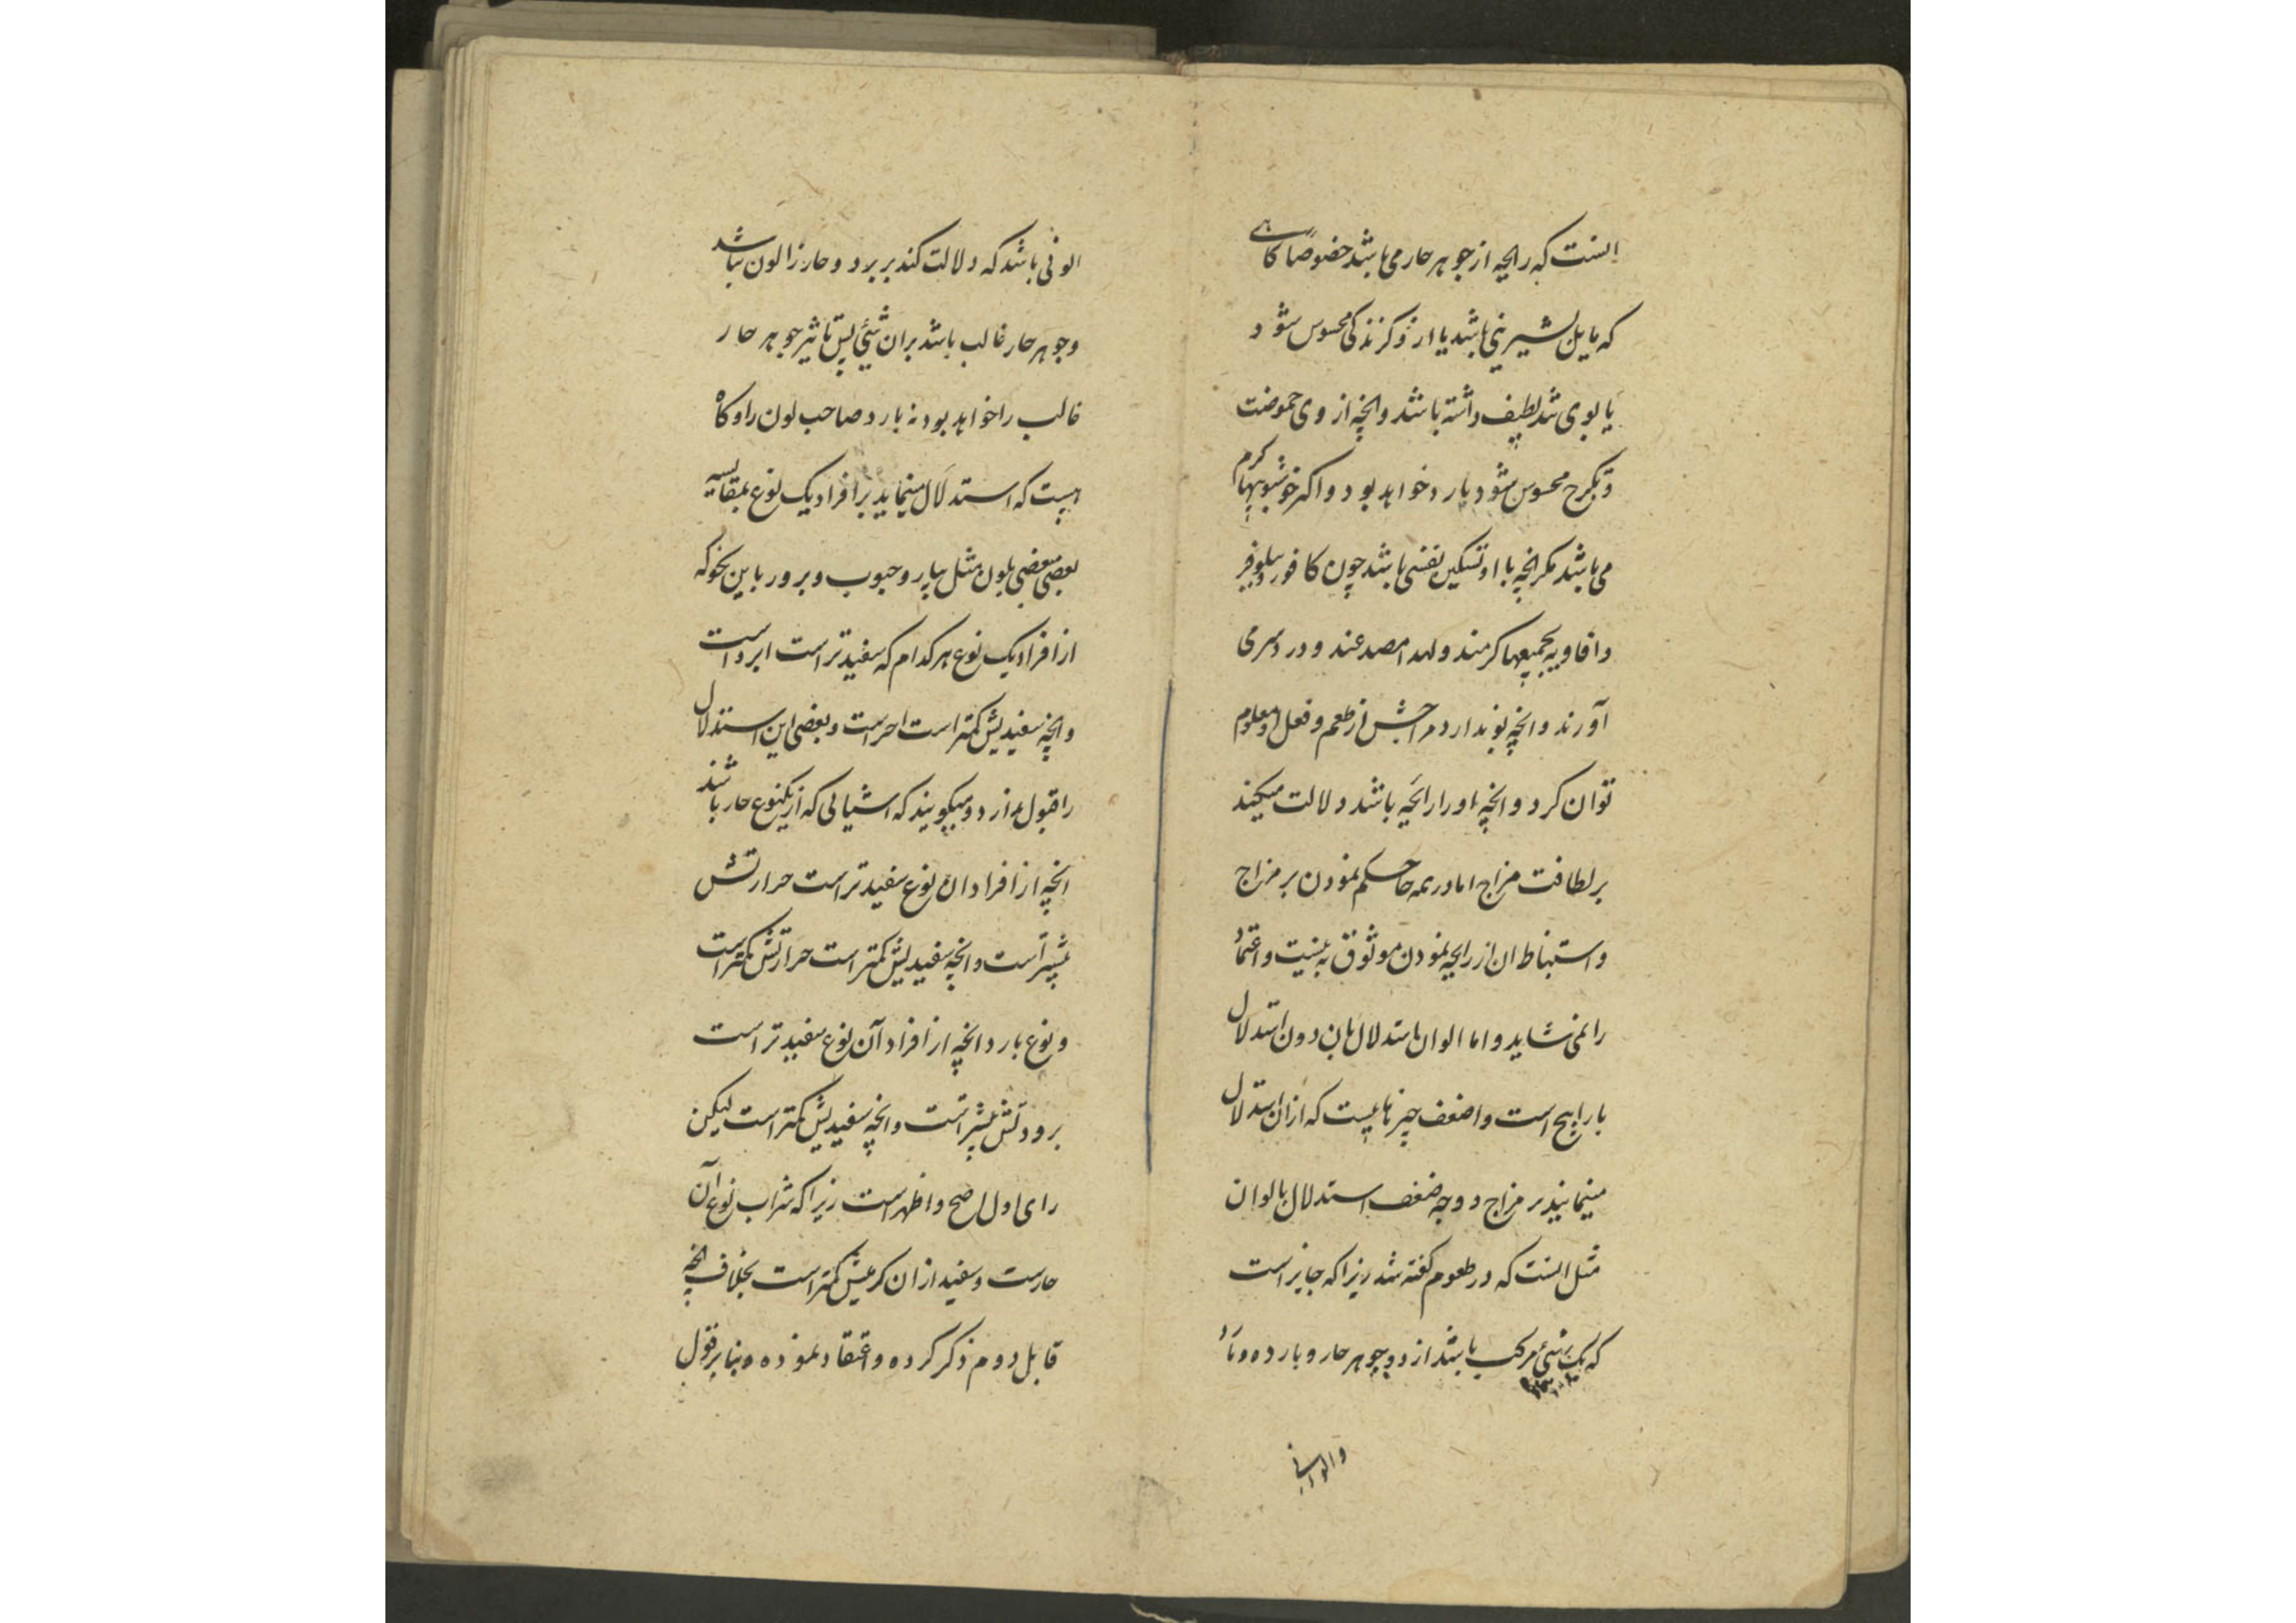 اینست که رایحه از جوهر حار می باشد خصوصا کاهی
که مایل بشیرینی باشد یا ازو کزندکی محسوس شود
یا بوی تند لطیف داشته باشد و انچه از وی حموضت
و تکرج محسوس شود بارد خواهد بود و اکثر خوشبویها کرم
می باشد مکر انچه با او تسکین نفسی باشد چون کافور و نیلوفر
و افاویه بجمیعها کرمند و لهذا مصدعند و درد سر می
آورند و انچه بو ندارد مزاجش از طعم و فعل او معلوم
توان کرد و انچه او را رایحه باشد دلالت میکند
بر لطافت مزاج اما در همه جا حکم نمودن بر مزاج
و استنباط ان از رایحه نمودن موثوق به نیست و اعتماد
را نمی شاید و اما الوان استدلال بان دون استدلال
بارایح است و اضعف چیزهاییست که ازان استدلال
مینمایند بر مزاج و وجه ضعف استدلال بالوان
مثل اینست که در طعوم کفته شد زیرا که جایز است
که یک شیئ مرکب باشد از دو جوهر حار و بارد و
الونی باشد که دلالت کند بر برد و حار را لون نباشد
و جوهر حار غالب باشد بران شیئ پس تاثیر جوهر حار
غالب را خواهد بود نه بارد صاحب لون را و کاه
هست که استدلال مینماید بر افراد یک نوع بمقایسه
بعضی ببعضی بلون مثل و حبوب و بزور باین نحو که
از افراد یک نوع هر کدام که سفید تر است ابرد است
و انچه سفیدیش کمتر است احر است و بعضی این استدلال
را قبول ندارد و میکویند که اشیائی که از یکنوع حار باشند
انچه از افراد ان نوع سفید تر است حرارتش
بیشتر است و انچه سفیدیش کمتر است حرارتش کمتر است
و نوع بارد انچه از افراد آن نوع سفید تر است
برودتش بیشتر است و انچه سفیدیش کمتر است لیکن
رای اول اصح و اظهر است زیرا که شراب نوع آن
حارست و سفید ازان کرمیش کمتر است بخلاف انچه
قایل دوم ذکر کرده و اعتقاد نموده و بنا بر قول